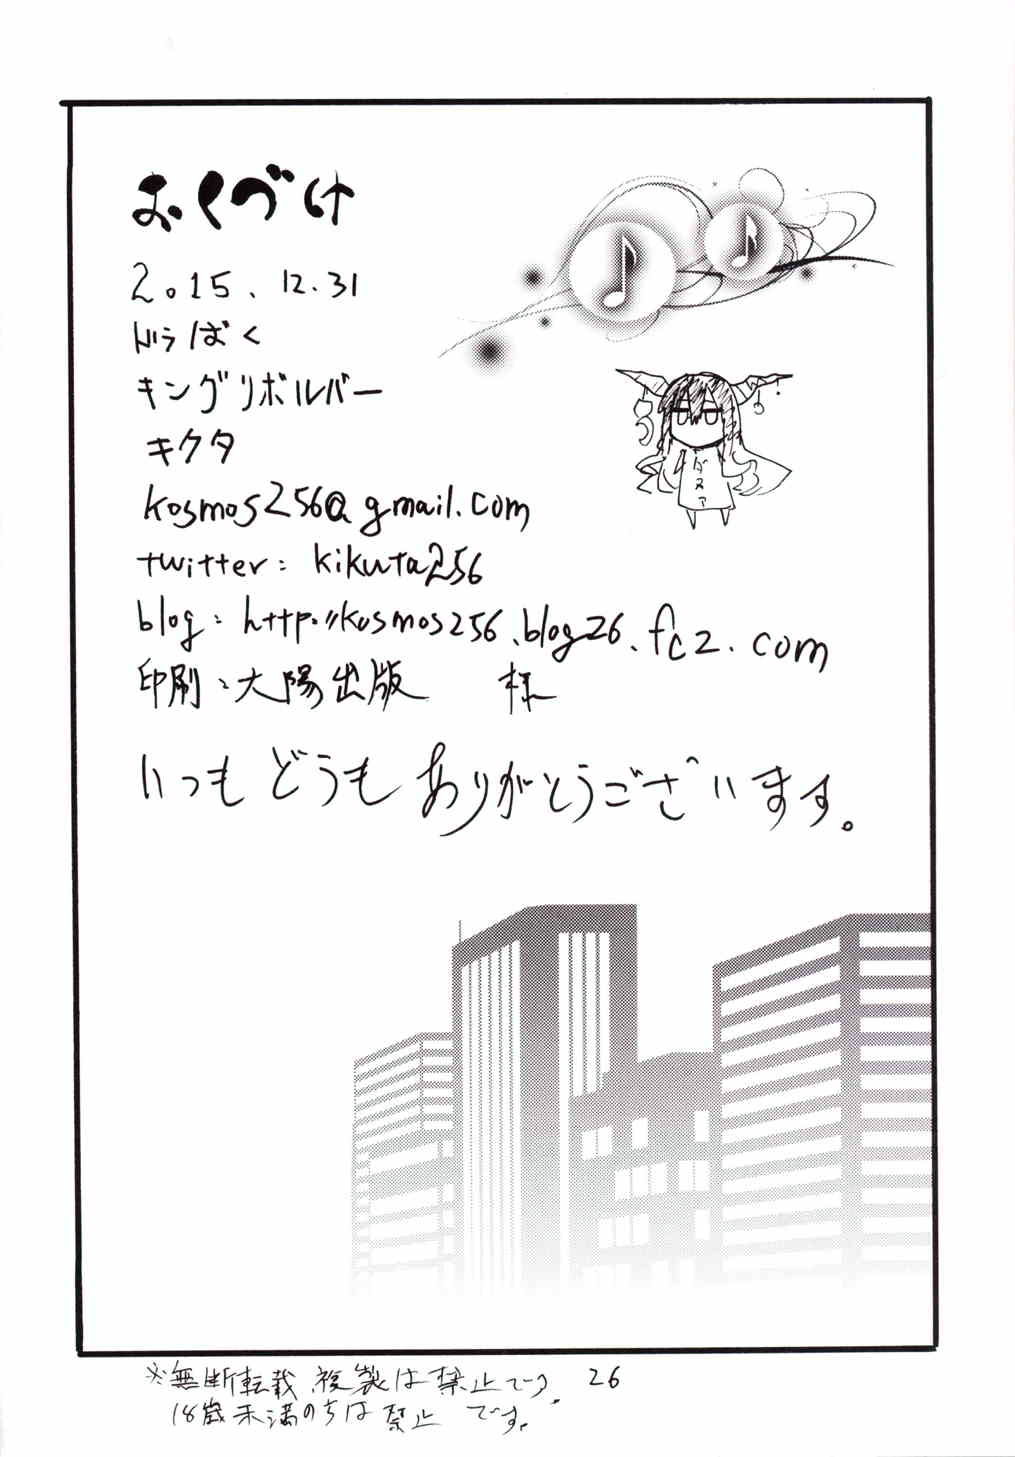 おくづけ
2015.12.31
ドラばく
キングリボルバー
キクタ
kosmos256@gmail.com
twitter: kikuta256
blog: http://kosmos256.blog26.fc2.com
印刷:大陽出版 様
いつもどうもありがとうございます。
※無断転載、複製は禁止です 26
18歳未満のちは禁止です。